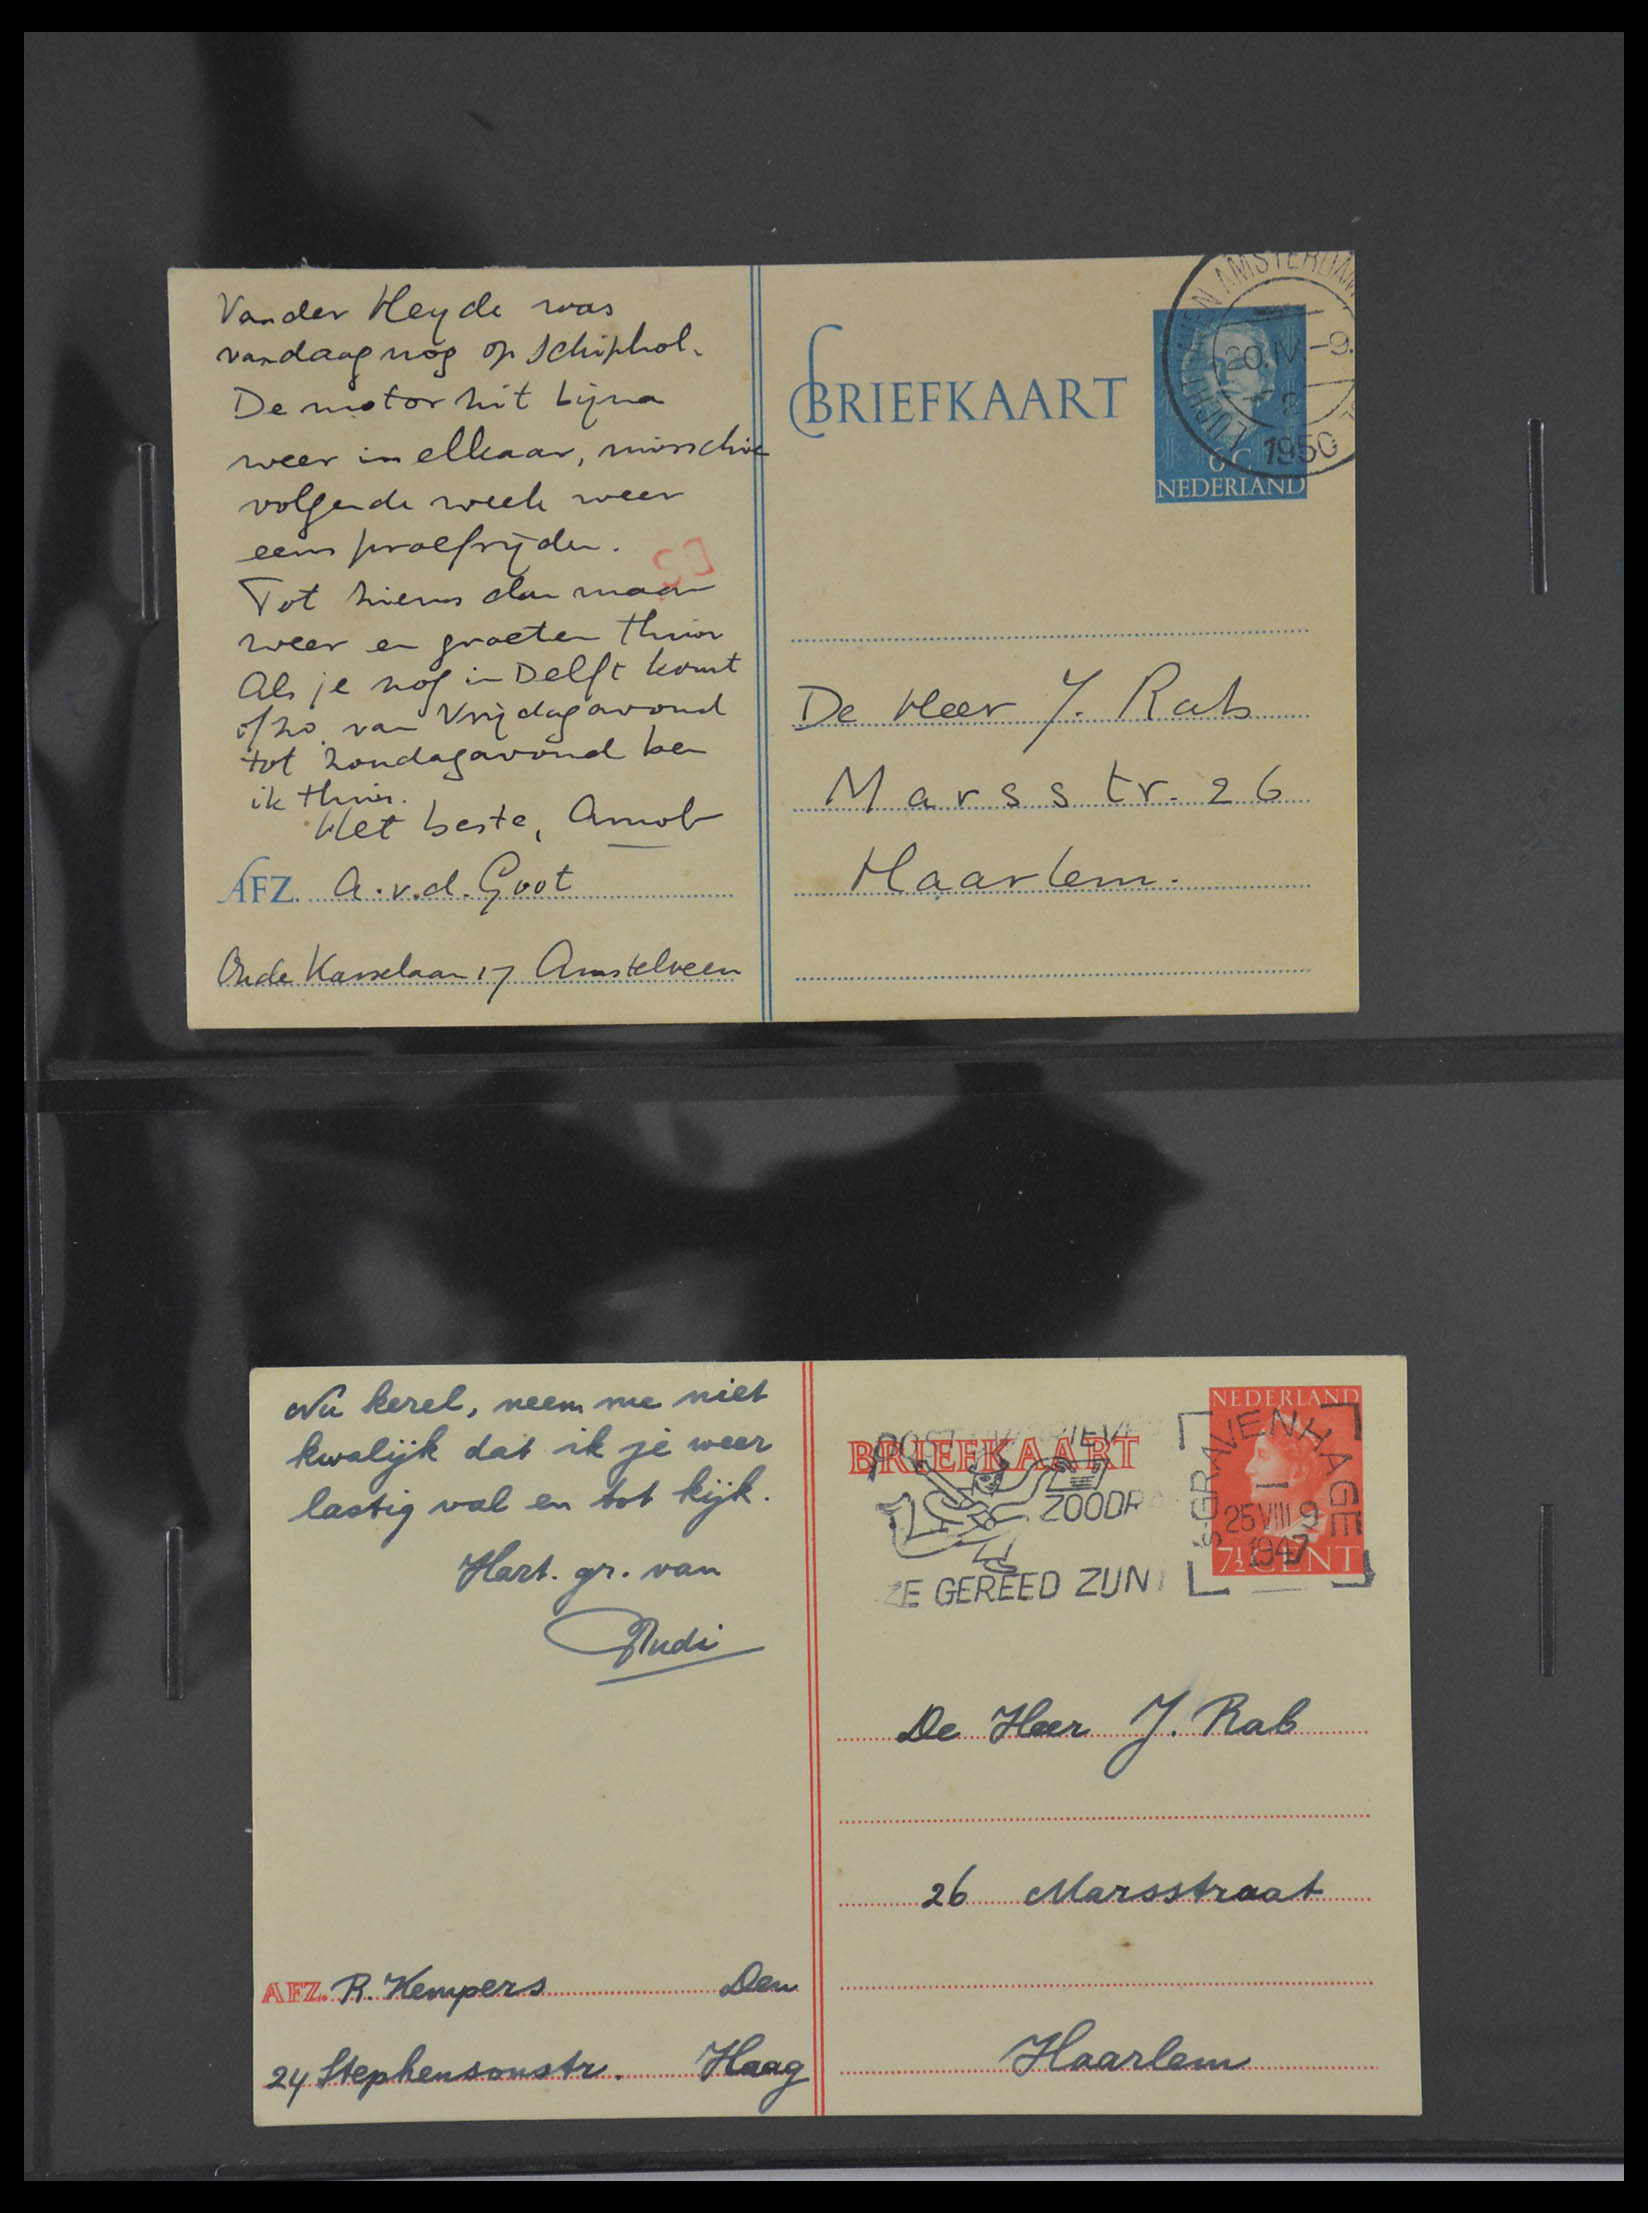 Van der Heyde was
vandaag nog op Schiphol.
De motor zit bijna
weer in elkaar, misschie
volgende week weer
eens proefrijden.
Tot ziens dan maar
weer en groeten thuis
Als je nog in Delft komt
o/zo. van Vrijdagavond
tot Zondagavond ben
ik thuis.
Het beste, Arnold
AFZ. A. v. d. Goot
Oude Karselaan 17 Amstelveen
BRIEFKAART
AMSTERDAM
20.IV -9.
1950
6 C
NEDERLAND
De Heer J. Rab
Marsstr. 26
Haarlem.
Nu kerel, neem me niet
kwalijk dat ik je weer
lastig val en tot kijk.
Hart. gr. van
Rudi
AFZ. R. Kempers Den
24 Stephensonstr. Haag
BRIEFKAART
POST
ZOODR
ZE GEREED ZIJN
NEDERLAND
'S-GRAVENHAGE
25 VIII 9
1947
7½ CENT
De Heer J. Rab
26 Marsstraat
Haarlem